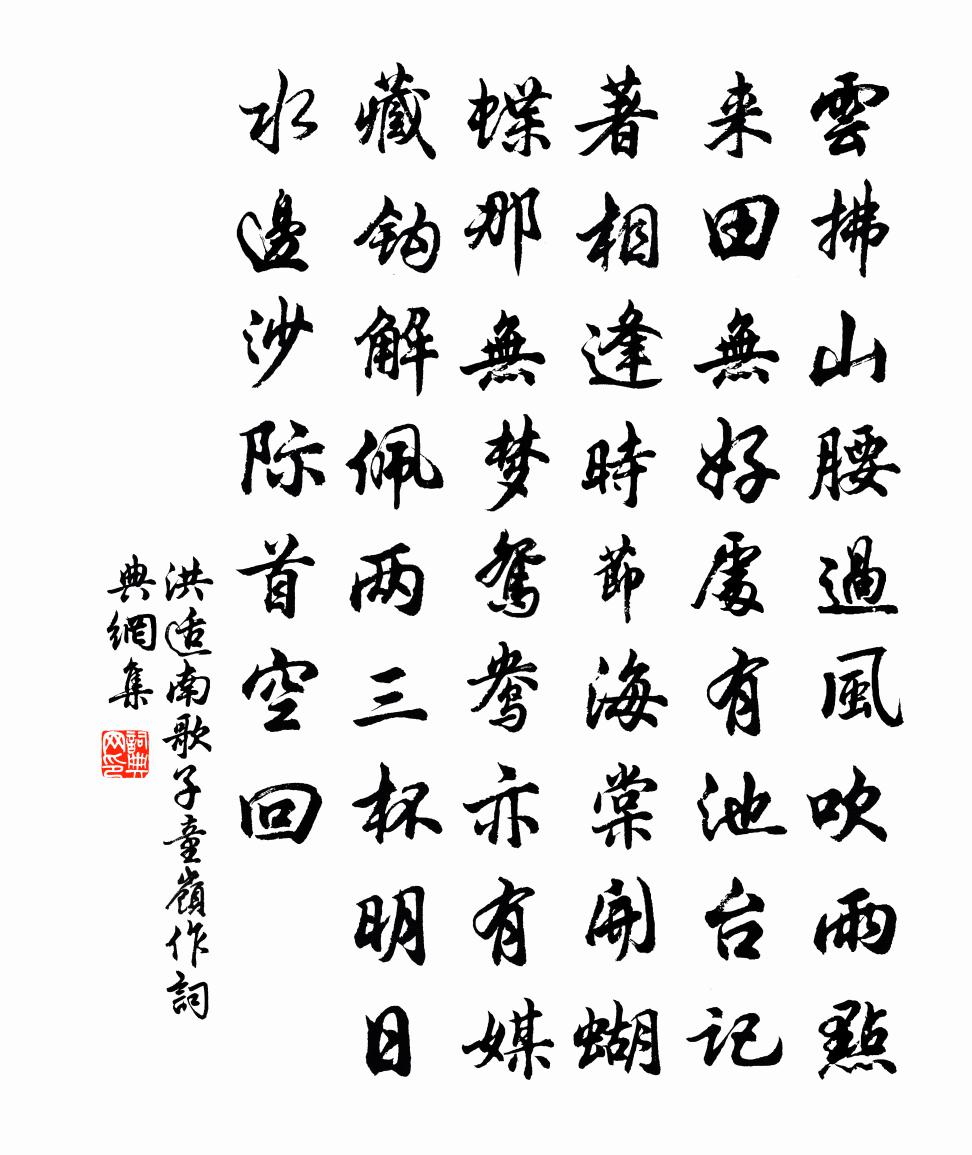 雲拂山腰過風吹雨點
来田無好處有池台记
著相逢時節海棠開蝴
蝶那無梦鴛鴦亦有媒
藏钩解佩两三杯明日
水邊沙际首空回
洪适南歌子童嶺作詞
典網集
詞典網印